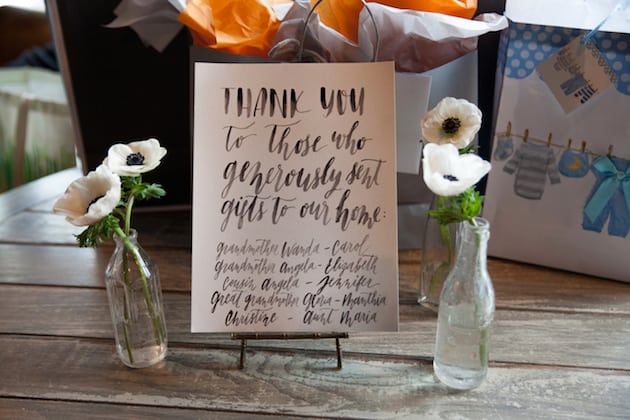 THANK YOU
to those who
generously sent
gifts to our home:
grandmother Wanda - Carol
grandmother Angela - Elizabeth
cousin Angela - Jennifer
great grandmother Gloria - Manthia
Christine - Aunt Maria